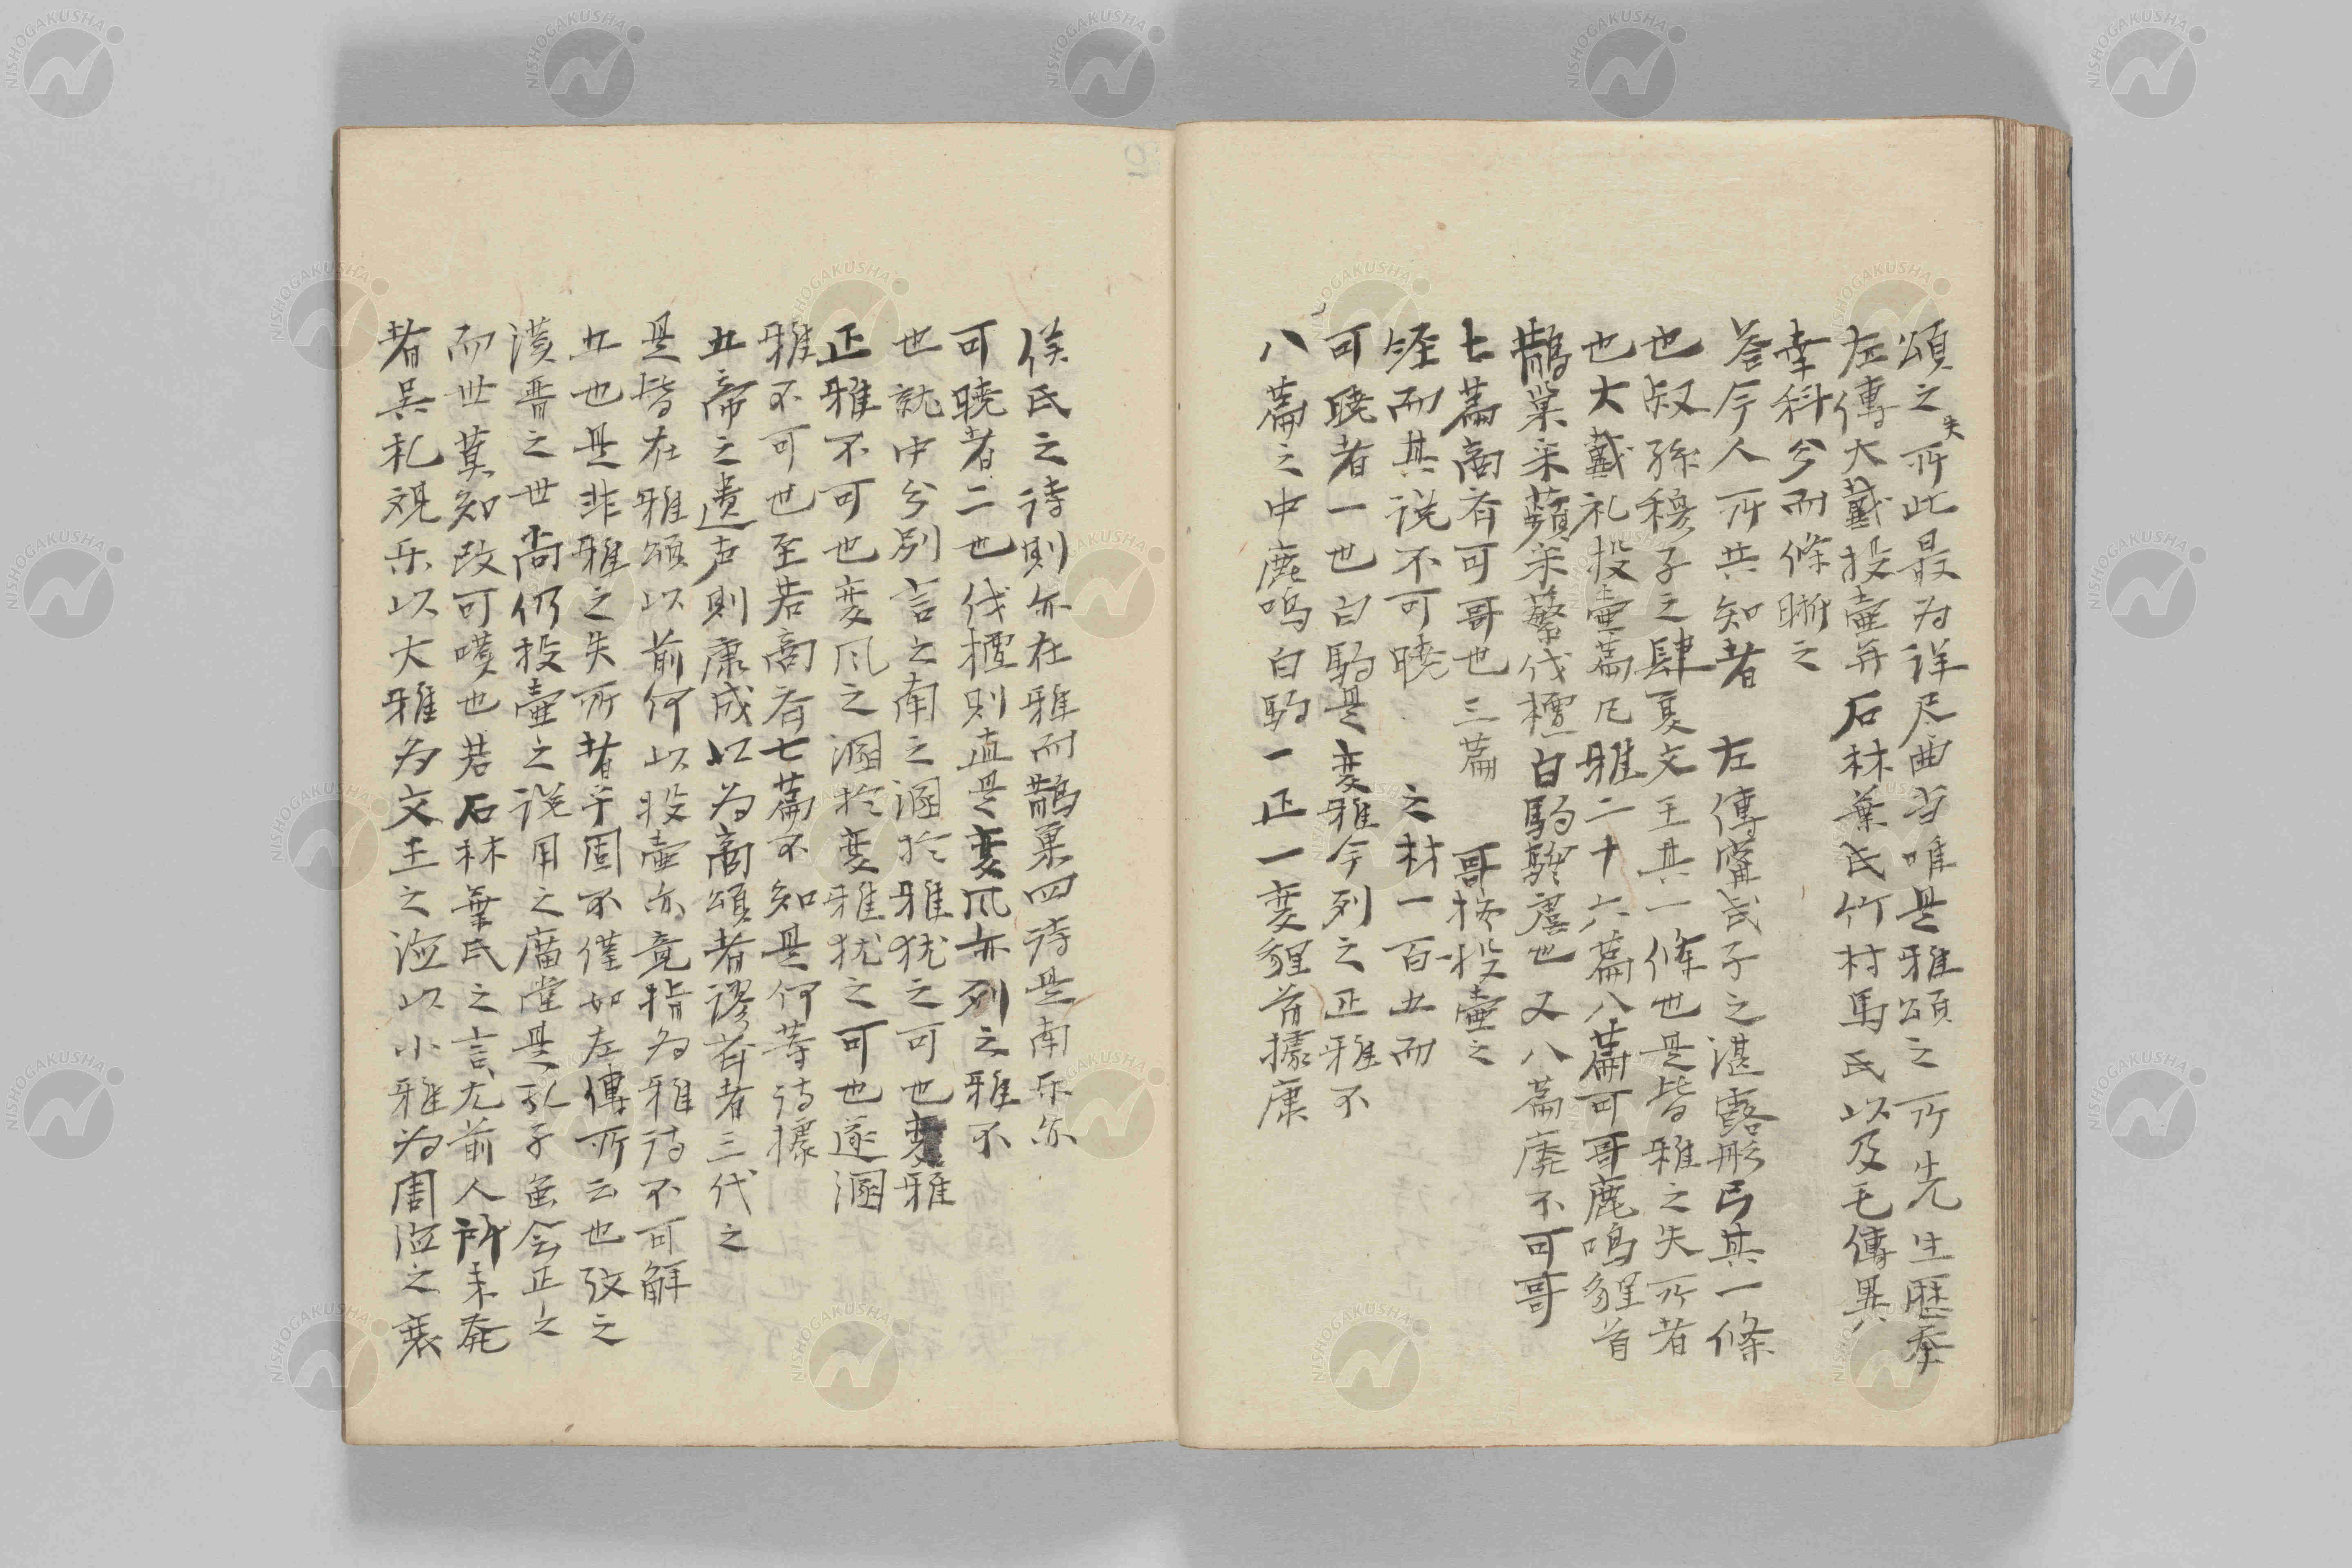 頌之失所此最为詳尽曲当唯是雅頌之所先生歴挙
左傳大戴投壷并石林葉氏竹村馬氏以及毛傳異
幸科分而條晰之
答今人所共知者　左傳甯武子之湛露彤弓其一條
也叔孫穆子之肆夏文王其一條也是皆雅之失所者
也大戴礼投壷篇凡雅二十六篇八篇可哥哥鹿鳴貍首
鵲巣采蘋采蘩伐檀白駒騶虞也又八篇廃不可哥
七篇商斉可哥也三篇　哥按投壷之
経而其説不可暁　之材一百五而
可暁者一也白駒是変雅今列之正雅不
八篇之中鹿鳴白駒一正一変貍首據康
侯氏之詩則亦在雅而鵲巣四詩是南乐亦
可暁者二也伐檀則直是変风亦列之雅不
也就中分別言之南之溷於雅犹之可也変雅
正雅不可也変风之溷於変雅犹之可也遂溷
雅不可也至若商斉七篇不知是何等詩據
五帝之遺声則康成以为商頌者謬斉者三代之
是皆在雅頌以前何以投壷亦竟指为雅詩不可解
五也是非雅之失所者乎固不僅如左傳所云也攷之
漢晋之世尚仍投壷之説用之廟堂是孔子
而世莫知改可嘆也若石林葉氏之言尤前人所未発
者呉札観乐以大雅为文王之 以小雅为周 之衰
NISHOGAKUSHA